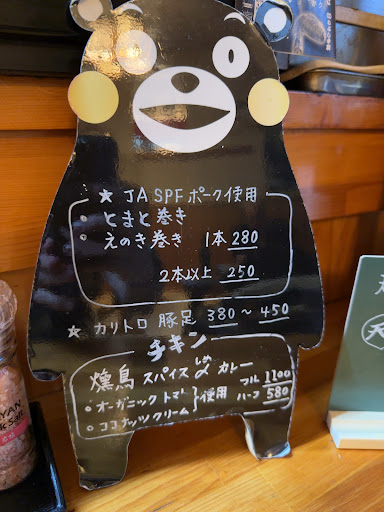 ★ JA SPFポーク使用
・とまと巻き
・えのき巻き 1本 280
2本以上 250
★ カリトロ 豚足 380〜450
チキン
燻鳥 スパイス〆カレー
しめ
フル 1100
ハーフ 580
・オーガニックトマト
・ココナッツクリーム
使用
YAN